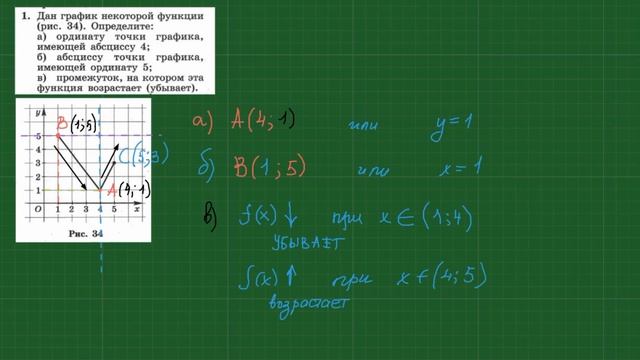 1. Дан график некоторой функции
(рис. 34). Определите:
а) ординату точки графика,
имеющей абсциссу 4;
б) абсциссу точки графика,
имеющей ординату 5;
в) промежуток, на котором эта
функция возрастает (убывает).
y
B (1;5)
5
4
C(5;3)
3
2
1
A(4;1)
O 1 2 3 4 5 x
Рис. 34
а) A(4;1) или y=1
б) B(1;5) или x=1
в) f(x)↓ при x∈(1;4)
УБЫВАЕТ
f(x)↑ при x∈(4;5)
возрастает